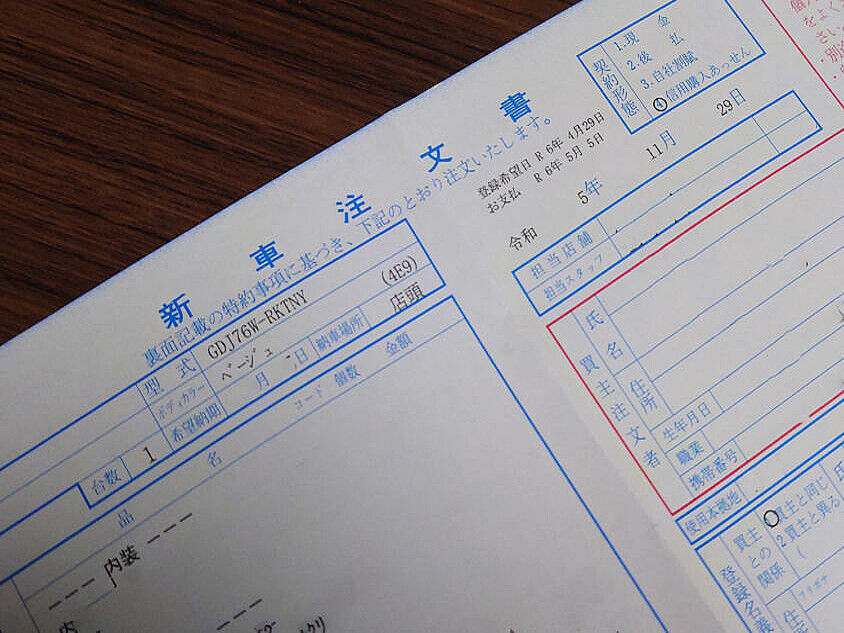 新車注文書
裏面記載の特約事項に基づき、下記のとおり注文いたします。
契約形態
1.現 金
2.後 払
3.自社割賦
④信用購入あっせん
登録希望日 R 6年 4月29日
お支払 R 6年 5月 5日
令和 5年 11月 29日
担当店舗
担当スタッフ
型 式 GDJ76W-RKTNY
ボディカラー ベージュ (4E9)
希望納期 月 日 納車場所 店頭
台数 1
品 名 コード 個数 金額
--- 内装 ---
買主注文者
氏 名
住 所
生年月日
職業
携帯番号
使用本拠地
買主との関係
買主と同じ
2買主と異る
(
登録名義
フリガナ
氏
住
内